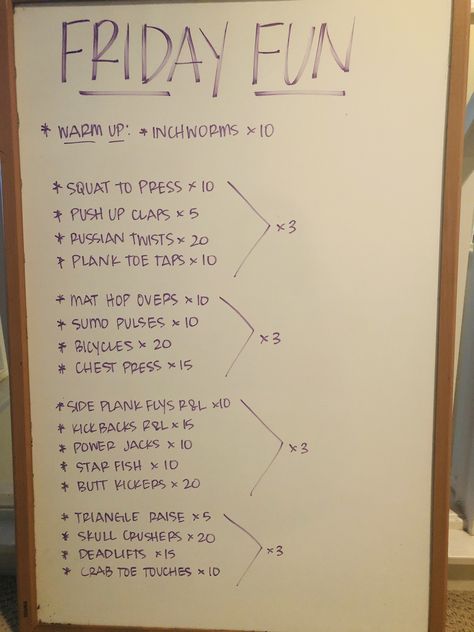 FRIDAY FUN
* WARM UP: * INCHWORMS x 10
* SQUAT TO PRESS x 10
* PUSH UP CLAPS x 5
* RUSSIAN TWISTS x 20
* PLANK TOE TAPS x 10
x 3
* MAT HOP OVERS x 10
* SUMO PULSES x 10
* BICYCLES x 20
* CHEST PRESS x 15
x 3
* SIDE PLANK FLYS R&L x 10
* KICK BACKS R&L x 15
* POWER JACKS x 10
* STAR FISH x 10
* BUTT KICKERS x 20
x 3
* TRIANGLE RAISE x 5
* SKULL CRUSHERS x 20
* DEADLIFTS x 15
* CRAB TOE TOUCHES x 10
x 3